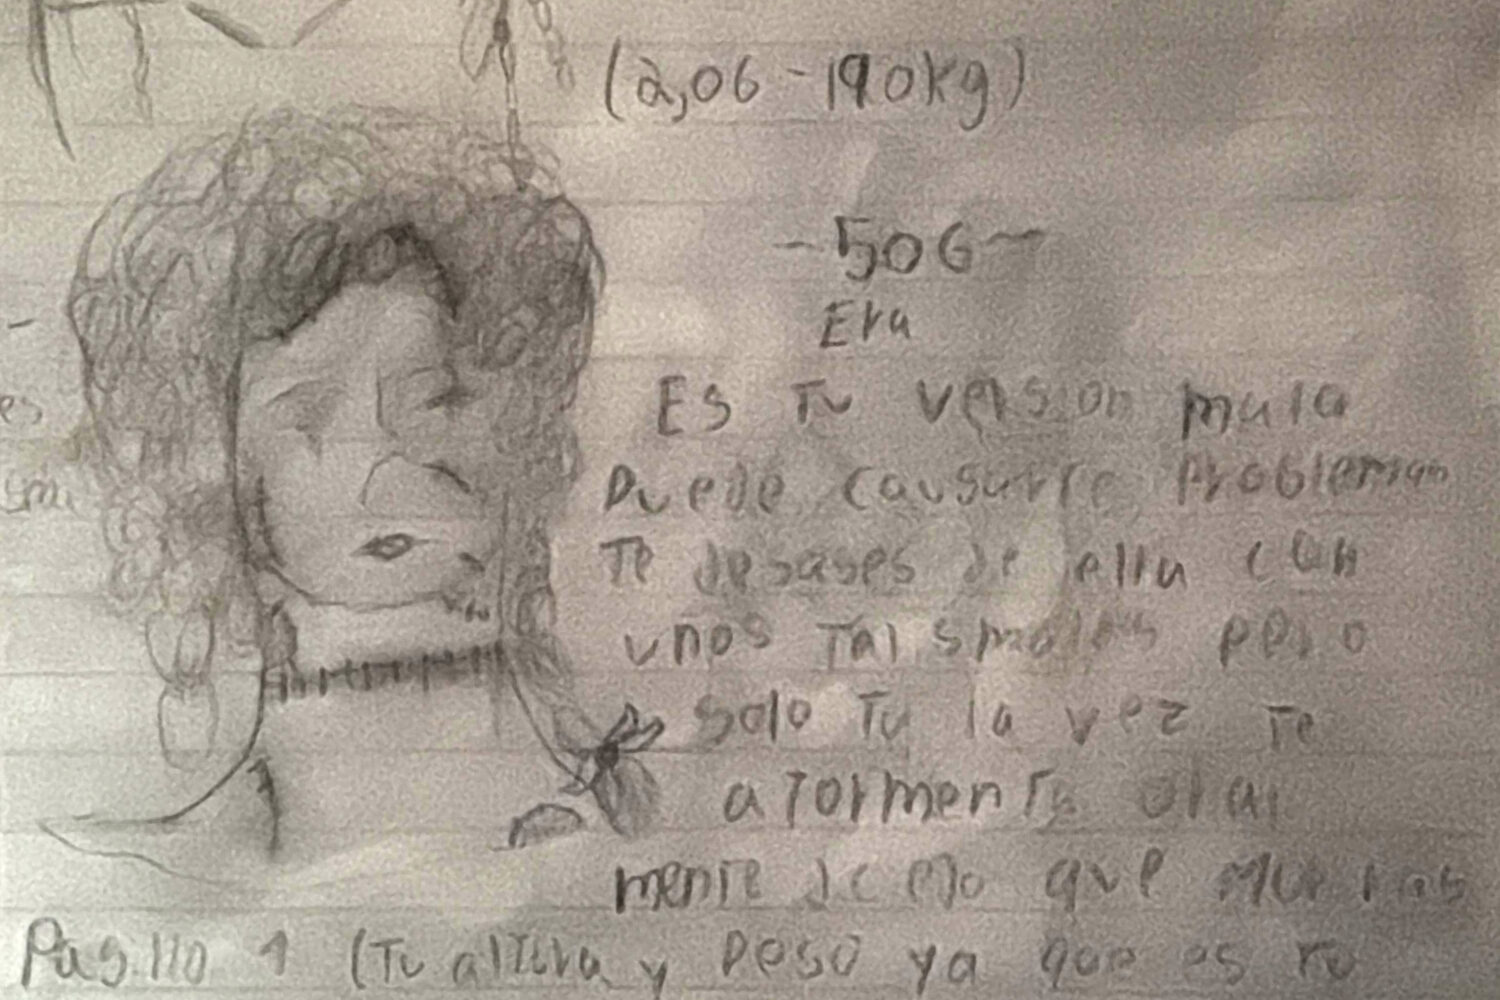 (2,06 - 190kg)
- 506 -
Era
es Es Tu version mala
Puede causarte Problemas
Te desases de ella con
unos Talismanes pero
solo Tu la vez Te
atormenta
mente que
Pasillo 1 (Tu altura y peso ya que es tu